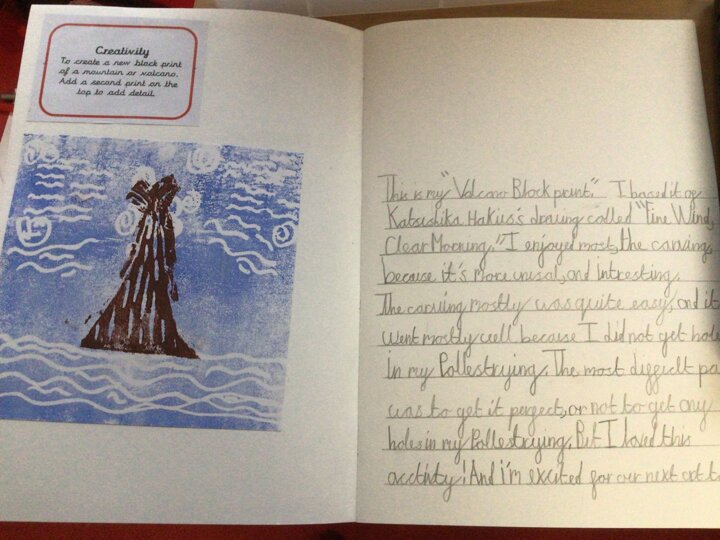 Creativity
To create a new block print
of a mountain or volcano.
Add a second print on the
top to add detail.
This is my "Volcano Block print." I based it of
Katsushika Hakius's drawing called "Fine Wind,
Clear Mooning." I enjoyed most, the carving,
because it's more unusal, and intresting.
The carving mostly was quite easy, and it
went mostly well because I did not get holes
in my Pollestrying. The most difficlt pa
was to get it perfect, or not to get any
holes in my Pollestrying. But I loved this
acctivity! And I'm excited for our next art to